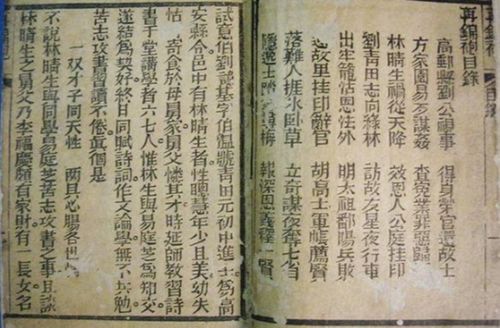 再錦袍目錄
高郵縣劉公視事 得身榮官還故士
方家園易芬謀姦 查冤業罪惡歸
林晴生禍從天降 效恩人公庭挂印
劉青田志向綠林 訪故友星夜行車
出牢籠怙恩法外 明太祖鄱陽兵敗
返故里挂印辭官 胡高士軍帳薦賢
落難人捱氷卧草 立奇謀夜奪七省
隱逸士梅 報深恩義程一賢
試意伯劉諱基字伯溫號青田元初中進士為高
安縣令邑中有林晴生者性聰慧年少且美幼失
怙寄食於母舅家舅父憐其才時延師教習詩
書于堂講學者六七人惟林生與易庭芝為知交
遂結為契好終日同賦詩詞作文論學無不共勉
苦志攻書習讀不倦眞個是
一双才子同天性 兩具心腸各世
不說林晴生與同學易庭芝苦志攻書之事且說
林晴生之舅父乃李福慶頗有家財有一長女名